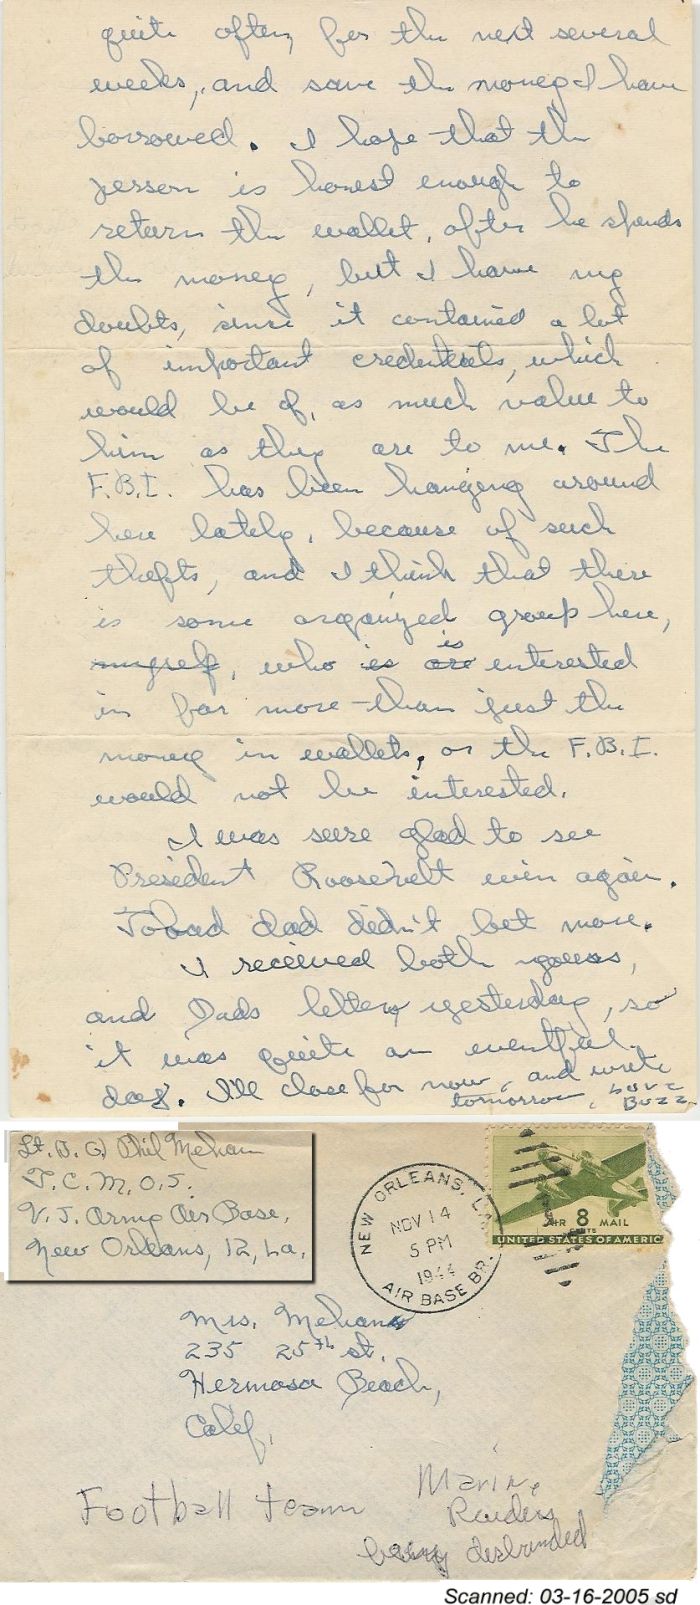 quite often, for the next several
weeks, and save the money I have
borrowed. I hope that the
person is honest enough to
return the wallet, after he spends
the money, but I have my
doubts, since it contained a lot
of important credentials, which
would be of, as much value to
him as they are to me. The
F.B.I. has been hanging around
here lately, because of such
thefts, and I think that there
is some organized group here,
myself, who is are is interested
in far more than just the
money in wallets, or the F.B.I.
would not be interested.
I was sure glad to see
President Roosevelt win again.
Tobad dad didn't bet more.
I received both yours,
and Dads letters yesterday, so
it was quite an eventful
day. I'll close for now, and write
tomorrow. Love
Buzz
Lt. D. G. Phil Mehan
T.C.M.O.S.
V.J. Army Air Base.
New Orleans, 12, La.
NEW ORLEANS, LA.
NOV 14
5 PM
1944
AIR BASE BR.
AIR 8 MAIL
CENTS
UNITED STATES OF AMERICA
Mrs. Mehan
235 25th st.
Hermosa Beach,
Calif,
Football team
Marine
Raiders
being disbanded
Scanned: 03-16-2005 sd